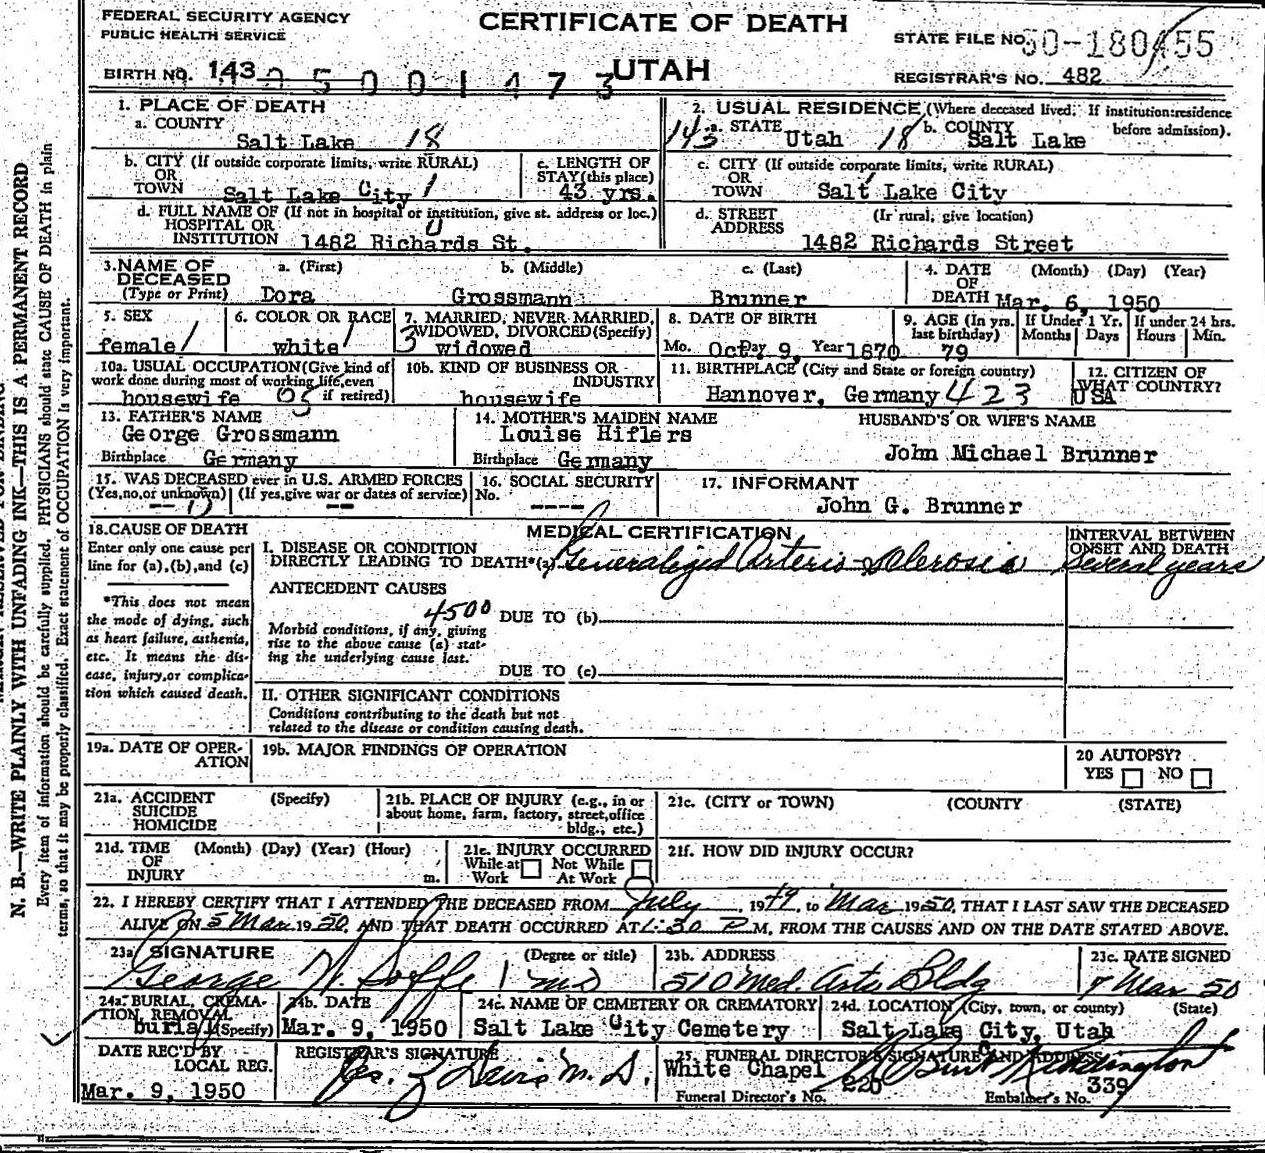 FEDERAL SECURITY AGENCY
PUBLIC HEALTH SERVICE
CERTIFICATE OF DEATH
STATE FILE NO. 50-180455
BIRTH NO. 143
0 5 0 0 1 4 7 3
UTAH
REGISTRAR'S NO. 482
1. PLACE OF DEATH
a. COUNTY
Salt Lake 18
2. USUAL RESIDENCE (Where deceased lived. If institution:residence before admission).
143 a. STATE Utah 18 b. COUNTY Salt Lake
b. CITY (If outside corporate limits, write RURAL)
OR
TOWN Salt Lake City 1
c. LENGTH OF STAY (this place)
43 yrs.
c. CITY (If outside corporate limits, write RURAL)
OR
TOWN Salt Lake City
d. FULL NAME OF (If not in hospital or institution, give st. address or loc.)
HOSPITAL OR
INSTITUTION 1482 Richards St. 0
d. STREET ADDRESS (If rural, give location)
1482 Richards Street
3. NAME OF DECEASED (Type or Print)
a. (First) Dora
b. (Middle) Grossmann
c. (Last) Brunner
4. DATE OF DEATH (Month) (Day) (Year)
Mar. 6, 1950
5. SEX
female 1
6. COLOR OR RACE
white 1
7. MARRIED, NEVER MARRIED, WIDOWED, DIVORCED (Specify)
3 widowed
8. DATE OF BIRTH
Mo. Oct. Day 9, Year 1870
9. AGE (In yrs. last birthday)
79
If Under 1 Yr.
Months Days
If under 24 hrs.
Hours Min.
10a. USUAL OCCUPATION (Give kind of work done during most of working life, even if retired)
housewife 05
10b. KIND OF BUSINESS OR INDUSTRY
housewife
11. BIRTHPLACE (City and State or foreign country)
Hannover, Germany 423
12. CITIZEN OF WHAT COUNTRY?
USA
13. FATHER'S NAME
George Grossmann
Birthplace Germany
14. MOTHER'S MAIDEN NAME
Louise Hiflers
Birthplace Germany
HUSBAND'S OR WIFE'S NAME
John Michael Brunner
15. WAS DECEASED ever in U.S. ARMED FORCES
(Yes, no, or unknown) (If yes, give war or dates of service)
-- 0 --
16. SOCIAL SECURITY
No. ----
17. INFORMANT
John G. Brunner
18. CAUSE OF DEATH
Enter only one cause per line for (a), (b), and (c)
*This does not mean the mode of dying, such as heart failure, asthenia, etc. It means the disease, injury, or complication which caused death.
MEDICAL CERTIFICATION
I. DISEASE OR CONDITION
DIRECTLY LEADING TO DEATH*(a) Generalized Arterio-Sclerosis
INTERVAL BETWEEN ONSET AND DEATH
Several years
ANTECEDENT CAUSES
4500
DUE TO (b)
Morbid conditions, if any, giving rise to the above cause (a) stating the underlying cause last.
DUE TO (c)
II. OTHER SIGNIFICANT CONDITIONS
Conditions contributing to the death but not
related to the disease or condition causing death.
19a. DATE OF OPERATION
19b. MAJOR FINDINGS OF OPERATION
20 AUTOPSY?
YES NO
21a. ACCIDENT (Specify)
SUICIDE
HOMICIDE
21b. PLACE OF INJURY (e.g., in or about home, farm, factory, street, office bldg., etc.)
21c. (CITY or TOWN) (COUNTY) (STATE)
21d. TIME (Month) (Day) (Year) (Hour)
OF
INJURY m.
21e. INJURY OCCURRED
While at Work
Not While At Work
21f. HOW DID INJURY OCCUR?
22. I HEREBY CERTIFY THAT I ATTENDED THE DECEASED FROM July, 1949, to Mar 1950, THAT I LAST SAW THE DECEASED
ALIVE ON 5 Mar. 1950, AND THAT DEATH OCCURRED AT 1:30 P M, FROM THE CAUSES AND ON THE DATE STATED ABOVE.
23a. SIGNATURE (Degree or title)
George N. Soffe MD
23b. ADDRESS
510 Med. Arts Bldg
23c. DATE SIGNED
7 Mar 50
24a. BURIAL, CREMATION, REMOVAL (Specify)
burial
24b. DATE
Mar. 9, 1950
24c. NAME OF CEMETERY OR CREMATORY
Salt Lake City Cemetery
24d. LOCATION (City, town, or county) (State)
Salt Lake City, Utah
DATE REC'D BY LOCAL REG.
Mar. 9, 1950
REGISTRAR'S SIGNATURE
Davis M.D.
25. FUNERAL DIRECTOR'S SIGNATURE AND ADDRESS
White Chapel
Funeral Director's No. 220
Embalmer's No. 339
N. B.—WRITE PLAINLY WITH UNFADING INK—THIS IS A PERMANENT RECORD
Every item of information should be carefully supplied. PHYSICIANS should state CAUSE OF DEATH in plain
terms, so that it may be properly classified. Exact statement of OCCUPATION is very important.